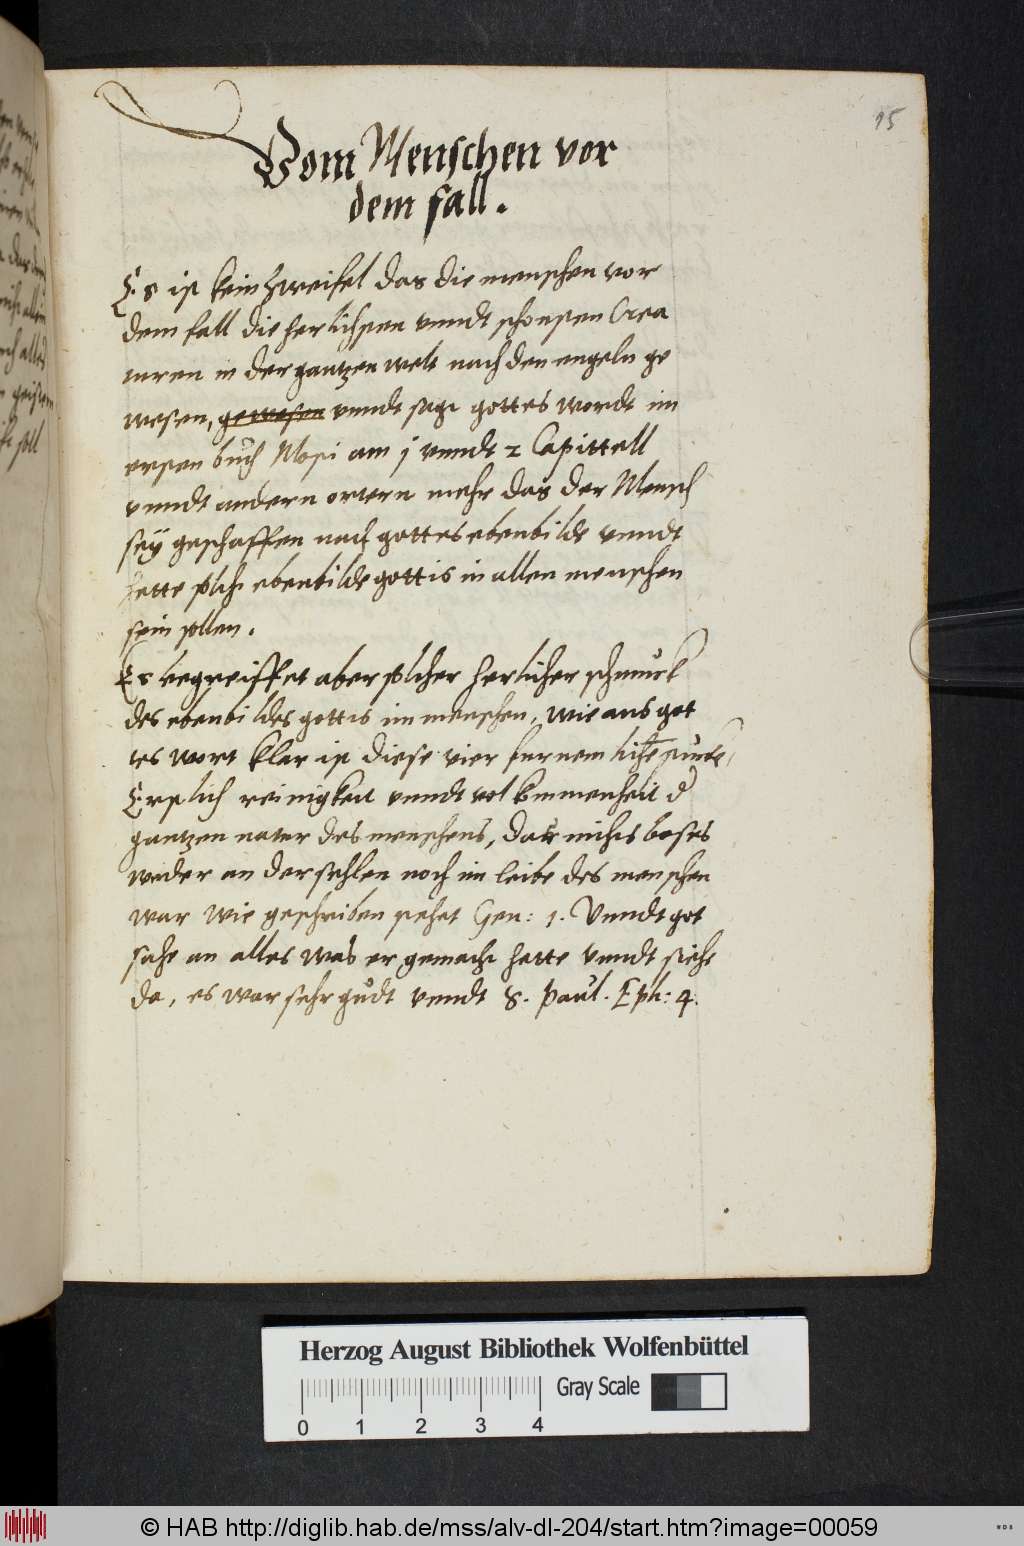 15
Vom Menschen vor
dem fall.
Es ist kein zweifel das die menschen vor
dem fall die herlichsten vnndt schonsten Crea
turen in der gantzen welt nach den engeln ge
wesen, gewesen vnndt sagt gottes wordt im
ersten buch Mosi am 1 vnndt 2 Capittell
vnndt andern ortern mehr das der Mensch
sey geschaffen nach gottes ebenbilde vnndt
hette solch ebenbilde gottis in allen menschen
sein sollen.
Es begreiffet aber solcher herlicher schmuck
des ebenbildes gottis im menschen, wie aus got
tes wort klar ist diese vier furnemlichste
Erstlich reinigkeit vnndt volkommenheit d
gantzen natur des menschens, das nichts boses
weder an der sehlen noch im leibe des menschen
war wie geschriben stehet Gen: 1. Vnndt got
sahe an alles was er gemacht hatte vnndt siehe
da, es war sehr gudt vnndt S. Paul. Eph: 4.
Herzog August Bibliothek Wolfenbüttel
Gray Scale
0 1 2 3 4
© HAB http://diglib.hab.de/mss/alv-dl-204/start.htm?image=00059